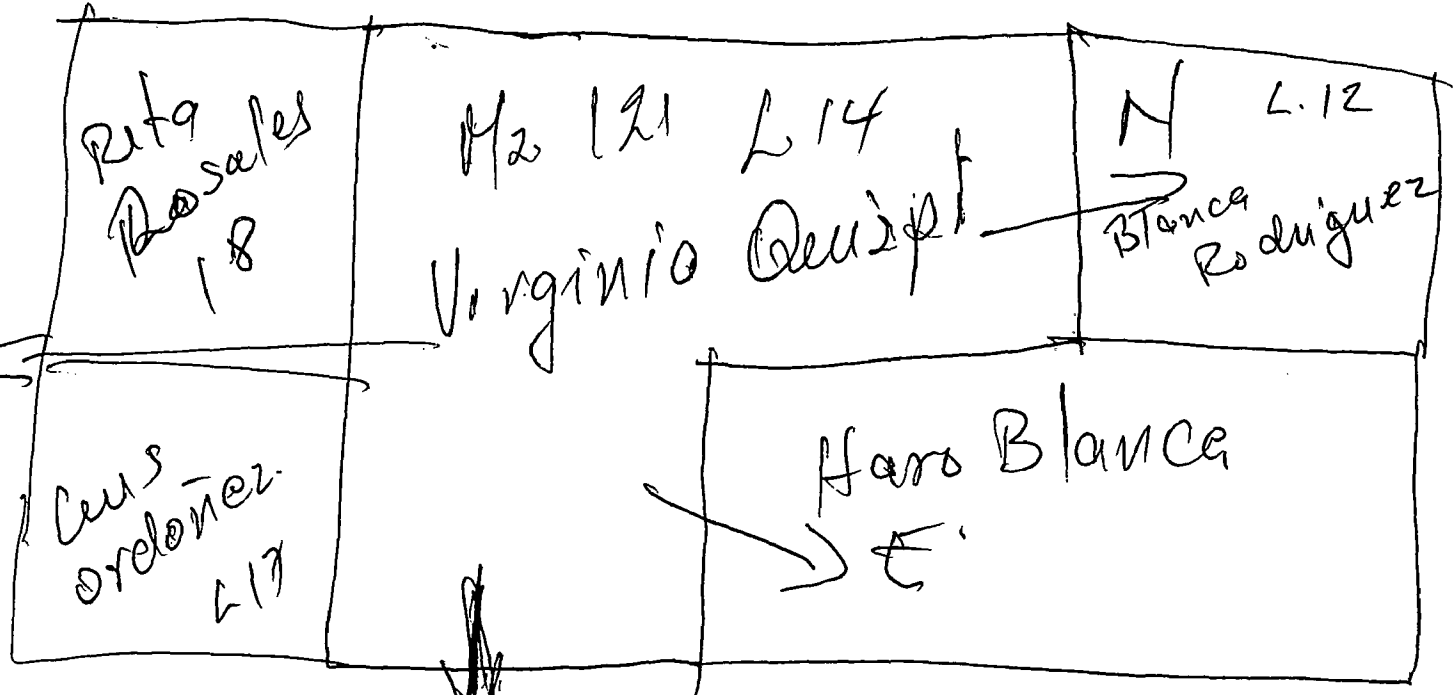 Rita
Rosales
18
Mz 121 L 14
Virginio Quispt
N L.12
Blanca
Rodriguez
Luis
ordoñez
L 17
Haro Blanca
E